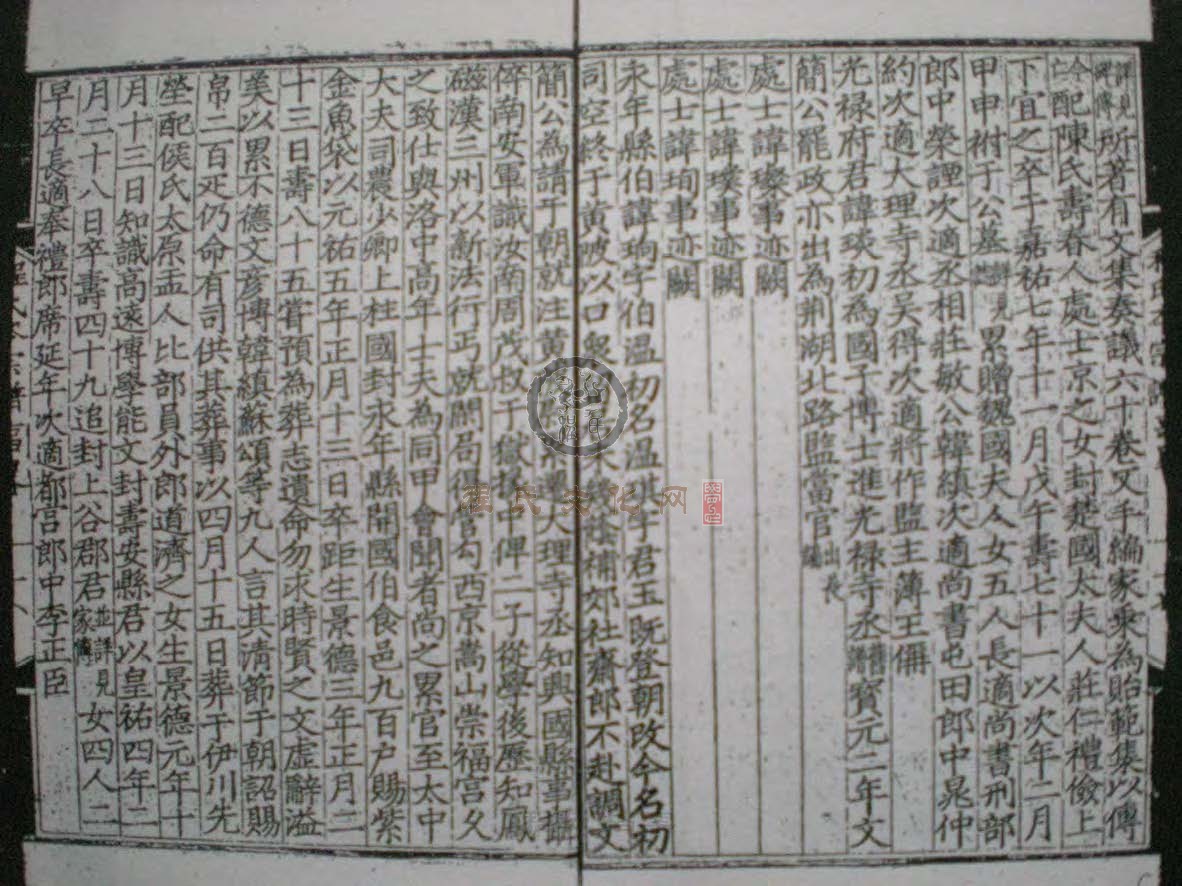 詳見碑傳所著有文集奏議六十卷又手編家乘為貽範集以傳
今亡配陳氏壽春人處士京之女封楚國太夫人莊仁禮儉上
下宜之卒于嘉祐七年十一月戊午壽七十一以次年二月
甲申祔于公墓詳見累贈魏國夫人女五人長適尚書刑部
郎中榮諲次適丞相莊敏公韓縝次適尚書屯田郎中晁仲
約次適大理寺丞吳得次適將作監主薄王傭
光祿府君諱琰初為國子博士進光祿寺丞寶元二年文
簡公罷政亦出為荆湖北路監當官出長編
處士諱璨事迹闕
處士諱璞事迹闕
處士諱珣事迹闕
永年縣伯諱珦字伯溫初名溫琪字君玉既登朝改今名初
司空終于黃陂以口衆蔭補郊社齋郎不赴調文
簡公為請于朝就注黃大理寺丞知興國縣事攝
倅南安軍識汝南周茂叔于獄掾中俾二子從學後歷知鳳
磁漢三州以新法行丐就閑局得管勾西京嵩山崇福宮久
之致仕與洛中高年士夫為同甲會聞者尚之累官至太中
大夫司農少卿上柱國封永年縣開國伯食邑九百户賜紫
金魚袋以元祐五年正月十三日卒距生景德三年正月二
十三日壽八十五嘗預為葬志遺命勿求時賢之文虛辭溢
美以累不德文彥博韓縝蘇頌等九人言其清節于朝詔賜
帛二百疋仍命有司供其葬事以四月十五日葬于伊川先
塋配侯氏太原盂人比部員外郎道濟之女生景德元年十
月十三日知識高遠博學能文封壽安縣君以皇祐四年二
月二十八日卒壽四十九追封上谷郡君並詳見家傳女四人二
早卒長適奉禮郎席延年次適都官郎中李正臣
程氏文化网